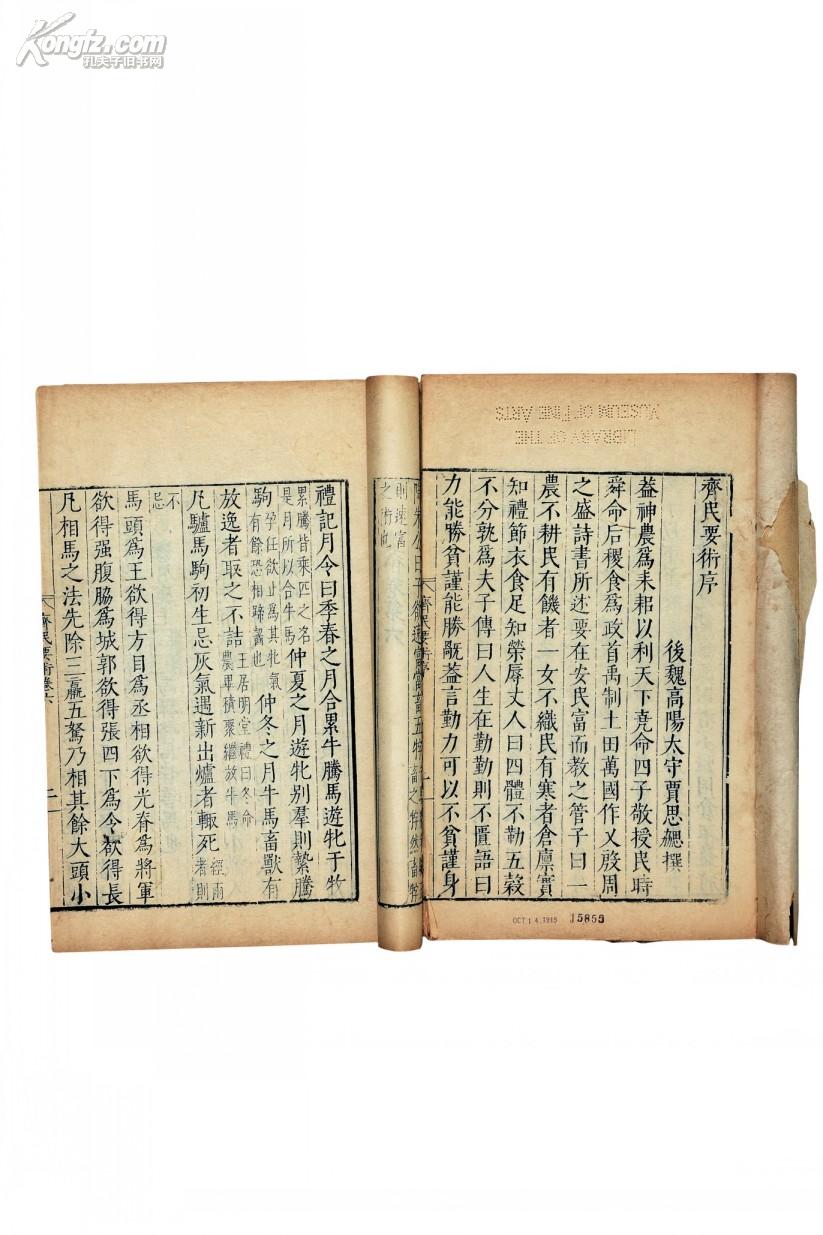 Kongfz.com
孔夫子旧书网
LIBRARY OF THE
MUSEUM OF FINE ARTS
齊民要術序
後魏高陽太守賈思勰撰
蓋神農爲耒耜以利天下堯命四子敬授民時
舜命后稷食爲政首禹制土田萬國作乂殷周
之盛詩書所述要在安民富而教之管子曰一
農不耕民有饑者一女不織民有寒者倉廩實
知禮節衣食足知榮辱丈人曰四體不勤五穀
不分孰爲夫子傳曰人生在勤勤則不匱語曰
力能勝貧謹能勝禍葢言勤力可以不貧謹身
齊民要術序
OCT 14 1915
15855
則速富
之術也
禮記月令曰季春之月合累牛騰馬遊牝于牧
累騰皆乘匹之名
是月所以合牛馬
仲夏之月遊牝別羣則縶騰
駒
孕任欲止爲其牝氣
有餘恐相蹄齧也
仲冬之月牛馬畜獸有
放逸者取之不詰
王居明堂禮曰冬命
農畢積聚繼放牛馬
凡驢馬駒初生忌灰氣遇新出爐者輙死
經雨
者則
不
忌
馬頭爲王欲得方目爲丞相欲得光脊爲將軍
欲得强腹脇爲城郭欲得張四下爲令欲得長
凡相馬之法先除三羸五駑乃相其餘大頭小
齊民要術卷六
二